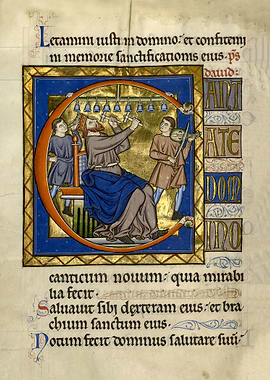 Letamini iusti in domino: et confitemi
ni memorie sanctificationis eius. ps
dauid:
CANT
ATE
DOM
INO
canticum nouum: quia mirabi
lia fecit.
Saluauit sibi dexteram eius: et bra
chium sanctum eius.
Notum fecit dominus salutare suū: